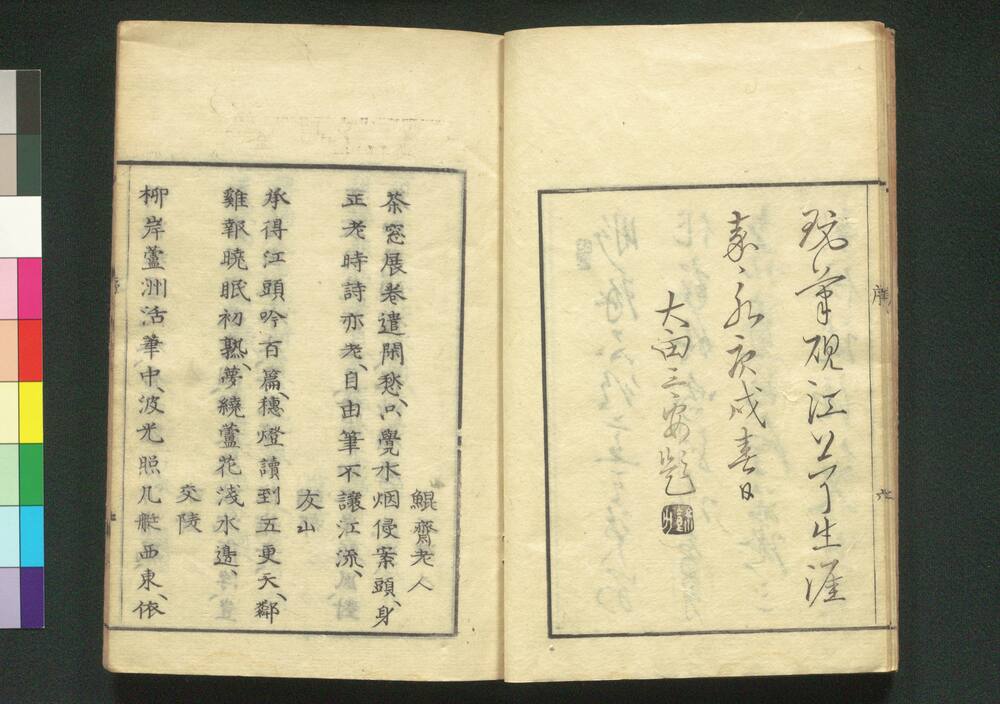 玩筆硯江上了生涯
嘉永庚戌春日
大田三安題
序
六
鯤齋老人
茶窓展卷遣閑愁、只覺水烟侵案頭、身
正老時詩亦老、自由筆不讓江流、
友山
承得江頭吟百篇、穗燈讀到五更天、鄰
雞報曉眠初熟、夢繞蘆花淺水邊、
交陵
柳岸蘆洲活筆中、波光照几艇西東、依